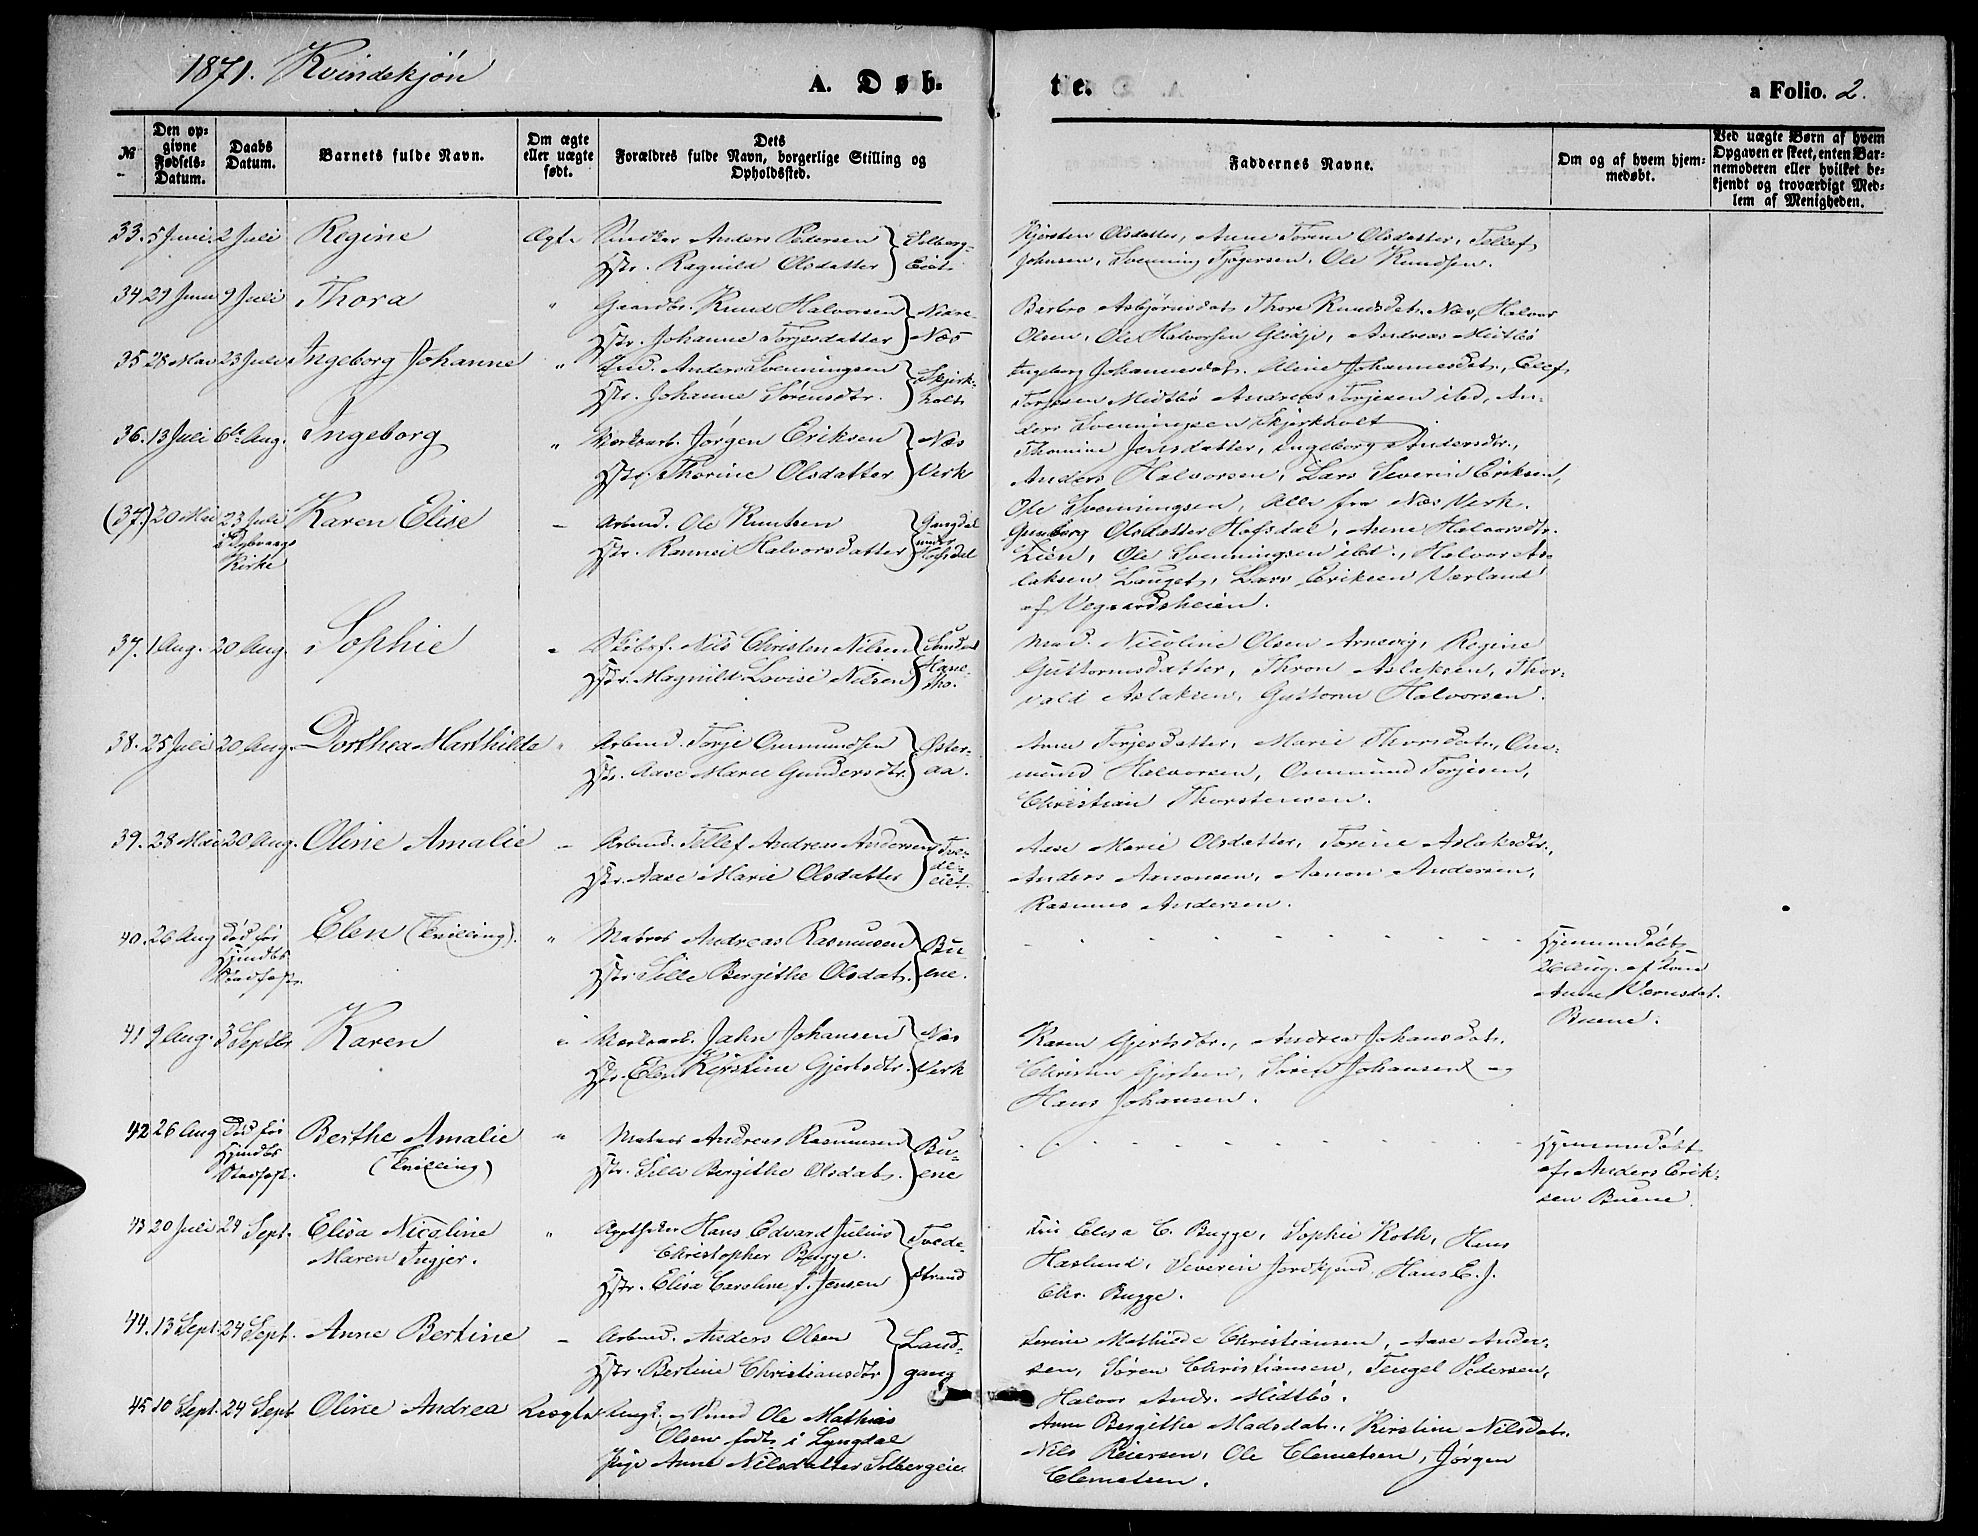 1871. Kvindekjön
A. Døb-
te.
a Folio. 2.
№
Den op-
givne
Fødsels-
Datum.
Daabs
Datum.
Barnets fulde Navn.
Om ægte
eller uægte
født.
Dets
Forældres fulde Navn, borgerlige Stilling og
Opholdssted.
Faddernes Navne.
Om og af hvem hjem-
medøbt.
Ved uægte Børn af hvem
Opgaven er skeet, enten Bar-
nemoderen eller hvilket be-
kjendt og troværdigt Med-
lem af Menigheden.
33. 5 Juni. 2 Juli Regine Ægte Anders Pedersen Solberg-
Hstr. Ragnild Olsdatter Eiet.
Kjersten Olsdatter, Anne Torine Olsdatter, Tellef
Johnsen, Svenning Tjøgersen, Ole Knudsen.
34 29 Juni 9 Juli Thora " Gaardbr. Knud Halvorsen Nedre
Hstr. Johanne Torjesdatter Næs
Barbro Asbjørnsdat. Thore Knudsdat. Næs, Halvor
Olsen, Ole Halvorsen Glødje, Andreas Midtbö
35 28 Mai 23 Juli Ingeborg Johanne " Ind. Anders Svenningsen Skjerk-
Hstr. Johanne Sörensdtr. holt
Ingeborg Johannesdat. Oline Johannesdat., Olef
Torjesen Midtbö Andreas Torjesen ibd, An-
ders Svenningsen Skjerkholt
36. 13 Juli 6te Aug. Ingeborg " Værksarb. Jørgen Eriksen Næs
Hstr. Thorine Olsdatter Verk
Thomine Jensdatter, Ingeborg Andersdtr.,
Anders Halvorsen, Lars Severin Eriksen,
Ole Svenningsen, alle fra Næs Verk.
(37.) 20 Mai 23 Juli Karen Elise - Arbmd. Ole Knutsen Gangdal
i Dybvaags Hstr. Rannei Halvorsdatter under
Kirke Hofsdal
Gunborg Olsdatter Hofsdal, Anne Halvorsdtr.
Lien, Ole Svenningsen ibd., Halvor As-
laksen Lauget, Lars Eriksen Værland
af Vegaardsheien.
37. 1 Aug. 20 Aug. Sophie " Skibsf. Nils Christen Nilsen Sundet
Hstr. Magnild Lovise Nilsen Hane-
sho.
Mad. Nicoline Olsen Arnevig, Regine
Guttormsdatter, Thron Aslaksen, Thor-
vald Aslaksen, Guttorm Halvorsen.
38. 25 Juli 20 Aug. Dorthea Marthilde " Arbmd. Torje Ommundsen Øster-
Hstr. Aase Marie Gundersdtr. aa.
Anne Torjesdatter, Marie Thorsdat., Om-
mund Halvorsen, Ommund Torjesen,
Christian Thorstensen.
39. 28 Mai 20 Aug. Oline Amalie - Arbmd. Tellef Andreas Andersen Tve-
Hstr. Aase Marie Olsdatter de-
eiet.
Aase Marie Olsdatter, Torine Aslaksdtr.,
Anders Aanonsen, Aanon Andersen,
Rasmus Andersen.
40. 26 Aug Død før Elen (Tvilling). " Matros Andreas Rasmussen Bu-
Hjemdbs Hstr. Sille Bergithe Olsdat. ene.
Stadfæst.
Hjemmedöbt
26 Aug. af Kone
Anne Værnsdat.
Buene.
41 9 Aug. 3 Septbr Karen " Værksarb. Jahn Johansen Næs
Hstr. Elen Kirstine Gjertsdtr. Verk
Karen Gjertsdtr., Andrea Johansdat.
Christen Gjertsen, Sören Johansen og
Hans Johansen.
42 26 Aug Død før Berthe Amalie " Matros Andreas Rasmussen Bu-
Hjemdbs (Tvilling) Hstr. Sille Bergithe Olsdat. ene
Stadfæst.
Hjemmedöbt
af Anders Erik-
sen Buene
43 20 Juli 24 Sept. Elisa Nicoline " Apotheker Hans Edvard Julius Tvede-
Maren Ingjer. Christopher Bugge.
Hstr. Elisa Caroline f. Jensen strand
Fru Elisa C. Bugge, Sophie Roth, Hans
Haslund, Severin Jordkjend, Hans E. J.
Chr. Bugge.
44. 13 Sept. 24 Sept. Anne Bertine - Arbmd. Anders Olsen Land-
Hstr. Bertine Christiansdtr gang
Serine Mathilde Christiansen, Aase Ander-
sen, Sören Christiansen, Tengel Pedersen,
Halvor Andr. Midtbö.
45 10 Sept. 24 Sept Oline Andrea Uægte Ungk. og Smed Ole Mathias
Olsen födt i Lyngdal
Pige Anne Nilsdatter Solbergeie
Anne Bergithe Madsdat., Kirstine Nilsdat.
Nils Reiersen, Ole Clemetsen, Jørgen
Clemetsen.